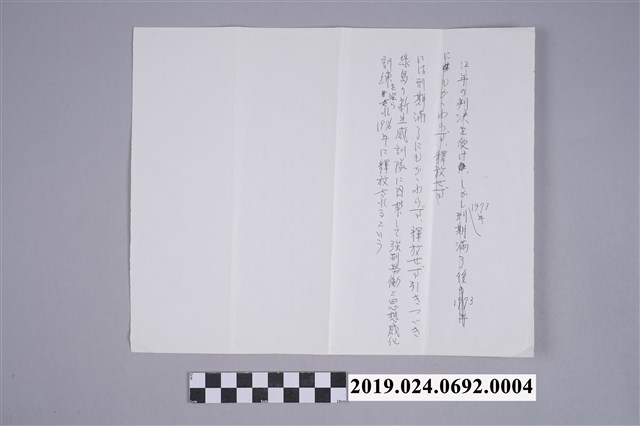 12年の判決を受け、しかし刑期満了後1973年
1973年
にもかゝわらず釈放せず
には刑期満了にもかゝわらず、釋放せず引きつゞき
緑島の新生感訓隊に囚禁して強制労働と思想感化
訓練を受け 1976年に釋放されるという
2019.024.0692.0004